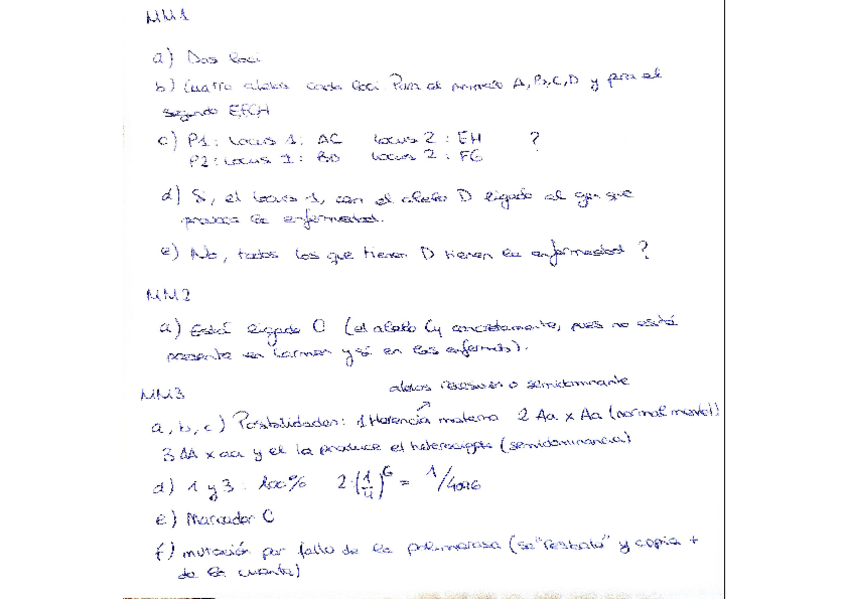 MM1
a) Dos loci
b) Cuatro alelos cada loci. Para el primero A, B, C, D y para el
segundo EFGH
c) P1: Locus 1: AC Locus 2: EH ?
P2: Locus 1: BD Locus 2: FG
d) Si, el locus 1, con el alelo D ligado al gen que
provoca la enfermedad.
e) No, todos los que tienen D tienen la enfermedad ?
MM2
a) Está ligado C (el alelo C4 concretamente, pues no está
presente en Carmen y sí en los enfermos).
alelos recesivos o semidominante
MM3
a, b, c) Posibilidades: 1 Herencia materna 2 Aa x Aa (normal mendel)
3 AA x aa y el la produce el heterocigoto (semidominancia)
d) 1 y 3: 100% 2·(1/4)^6 = 1/4096
e) Marcador C
f) mutación por fallo de la polimerasa (se "resbala" y copia +
de la cuenta)